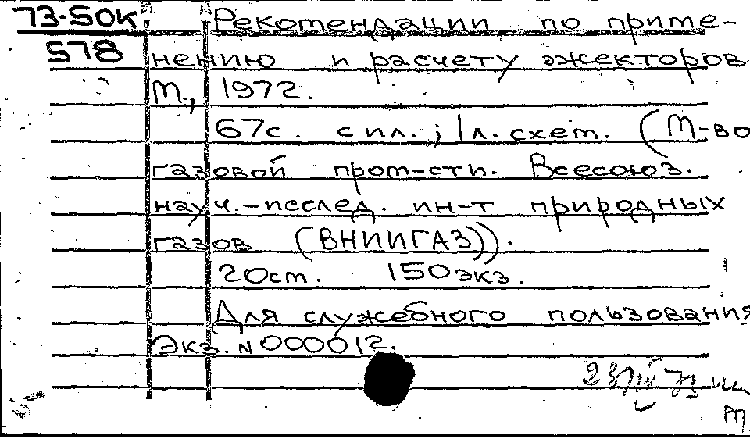 73-50к Рекомендации по приме-
578 нению и расчету эжекторов
М., 1972.
67с. с ил.; 1л. схем. (М-во
газовой пром-сти. Всесоюз.
науч.-исслед. ин-т природных
газов (ВНИИГАЗ)).
20см. 150экз.
Для служебного пользования
Экз. №000012.